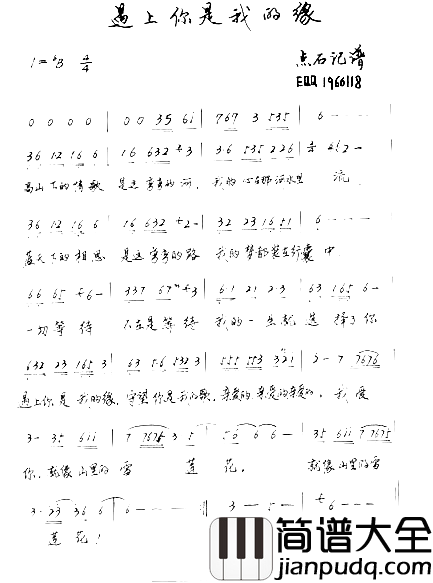 遇上你是我的缘
1=♭B 4/4
点石记谱
EQQ 1960118
0 0 0 0 | 0 0 35 61 | 767 3 535 | 6 - - - |
36 12 16 6 | 16 632 3 | 3·6 535 226
高山下的情歌 是这弯弯的河 我的心在那河水里 流
36 12 16 6 | 16 632 2 - | 32 23 16 51 | 6 - - -
蓝天下的相思 是这弯弯的路 我的梦都装在行囊中
66 65 6 - | 337 67 3 | 6·1 21 2·3 | 63 165 6 -
一切等待 不在是等待 我的一生就选择了你
632 23 165 3 | 63 56 532 3 | 555 553 321 | 2 - 7 7676
遇上你是我的缘 守望你是我的歌 亲爱的亲爱的亲爱的 我爱
3 - 35 611 | 7 7675 3 5 | 5 6 6 6 - | 35 611 7 7675
你 就像山里的雪 莲花 就像山里的雪
3 · 23 36 6 | 6 - - - | 3 - 5 - | 6 - - -
莲花!
简谱大全
jianpudq.com